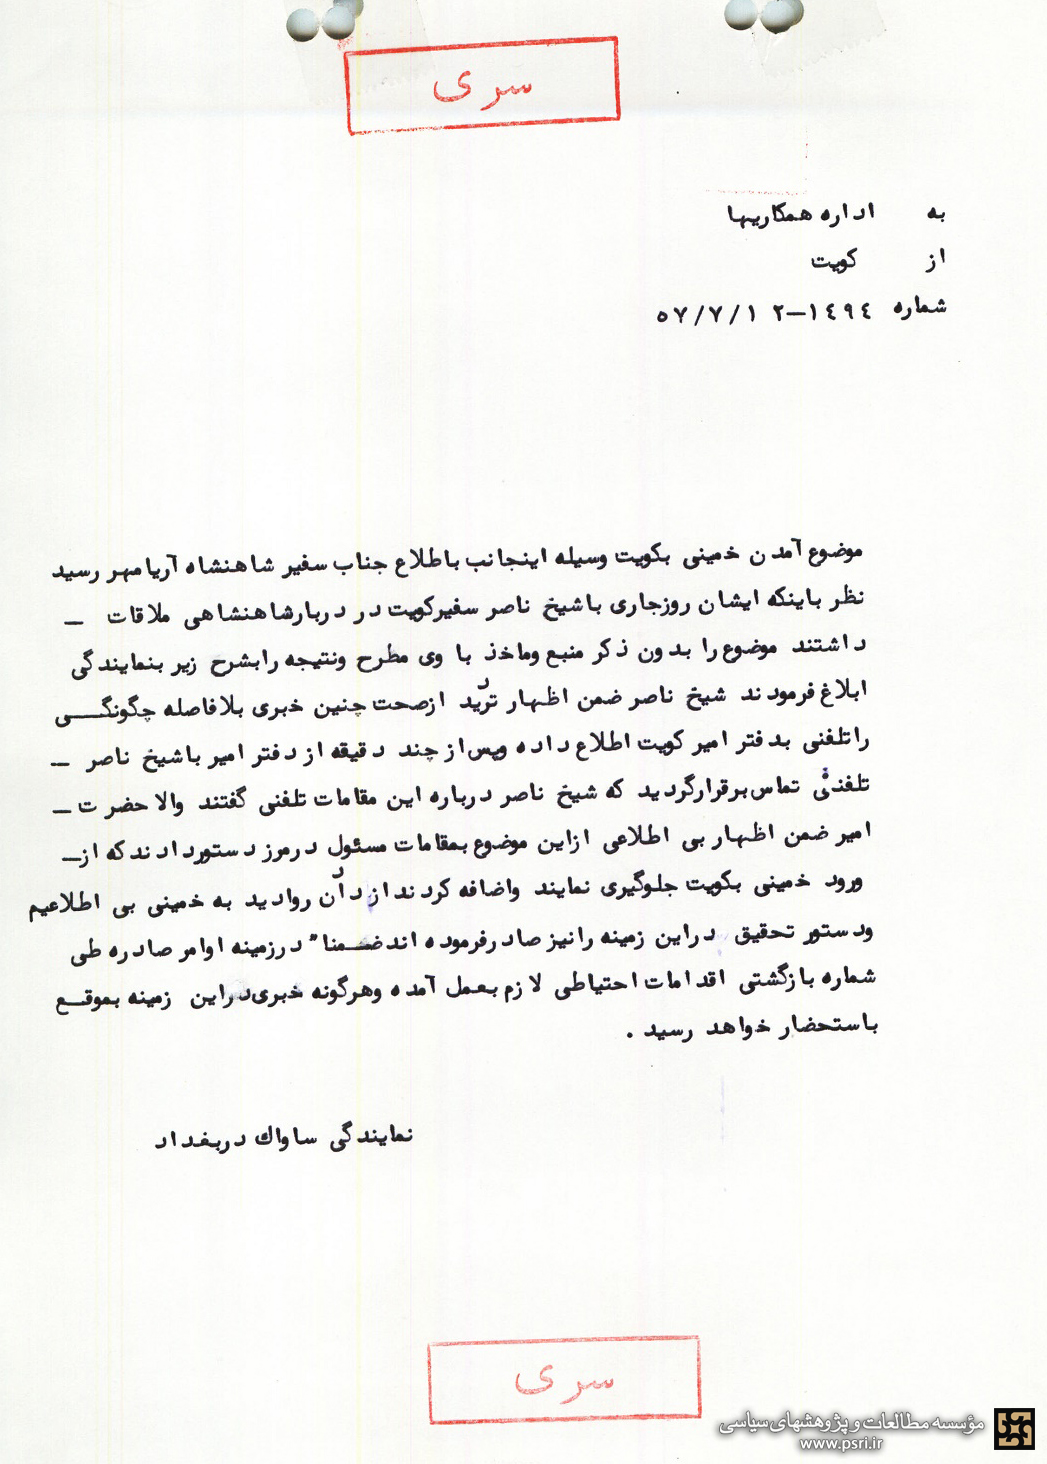 سری
به اداره همکاریها
از کویت
شماره ١٤٩٤-٥٧/٧/١٢
موضوع آمدن خمینی بکویت وسیله اینجانب باطلاع جناب سفیر شاهنشاه آریامهر رسید
نظر باینکه ایشان روزجاری باشیخ ناصر سفیرکویت در دربارشاهنشاهی ملاقات –
داشتند موضوع را بدون ذکر منبع وماخذ با وی مطرح ونتیجه رابشرح زیر بنمایندگی
ابلاغ فرمودند شیخ ناصر ضمن اظهار تردید ازصحت چنین خبری بلافاصله چگونگی
راتلفنی بدفتر امیر کویت اطلاع داده وپس از چند دقیقه از دفتر امیر باشیخ ناصر –
تلفنی تماس برقرارگردید که شیخ ناصر درباره این مقامات تلفنی گفتند والا حضرت –
امیر ضمن اظهار بی اطلاعی ازاین موضوع بمقامات مسئول درمرز دستوردادند که از –
ورود خمینی بکویت جلوگیری نمایند واضافه کردند از دادن روادید به خمینی بی اطلاعیم
ودستور تحقیق دراین زمینه رانیز صادرفرموده اند ضمنا" درزمینه اوامر صادره طی
شماره بازگشتی اقدامات احتیاطی لازم بعمل آمده وهرگونه خبری دراین زمینه بموقع
باستحضار خواهد رسید .
نمایندگی ساواك دربغداد
سری
مؤسسه مطالعات و پژوهشهای سیاسی
www.psri.ir